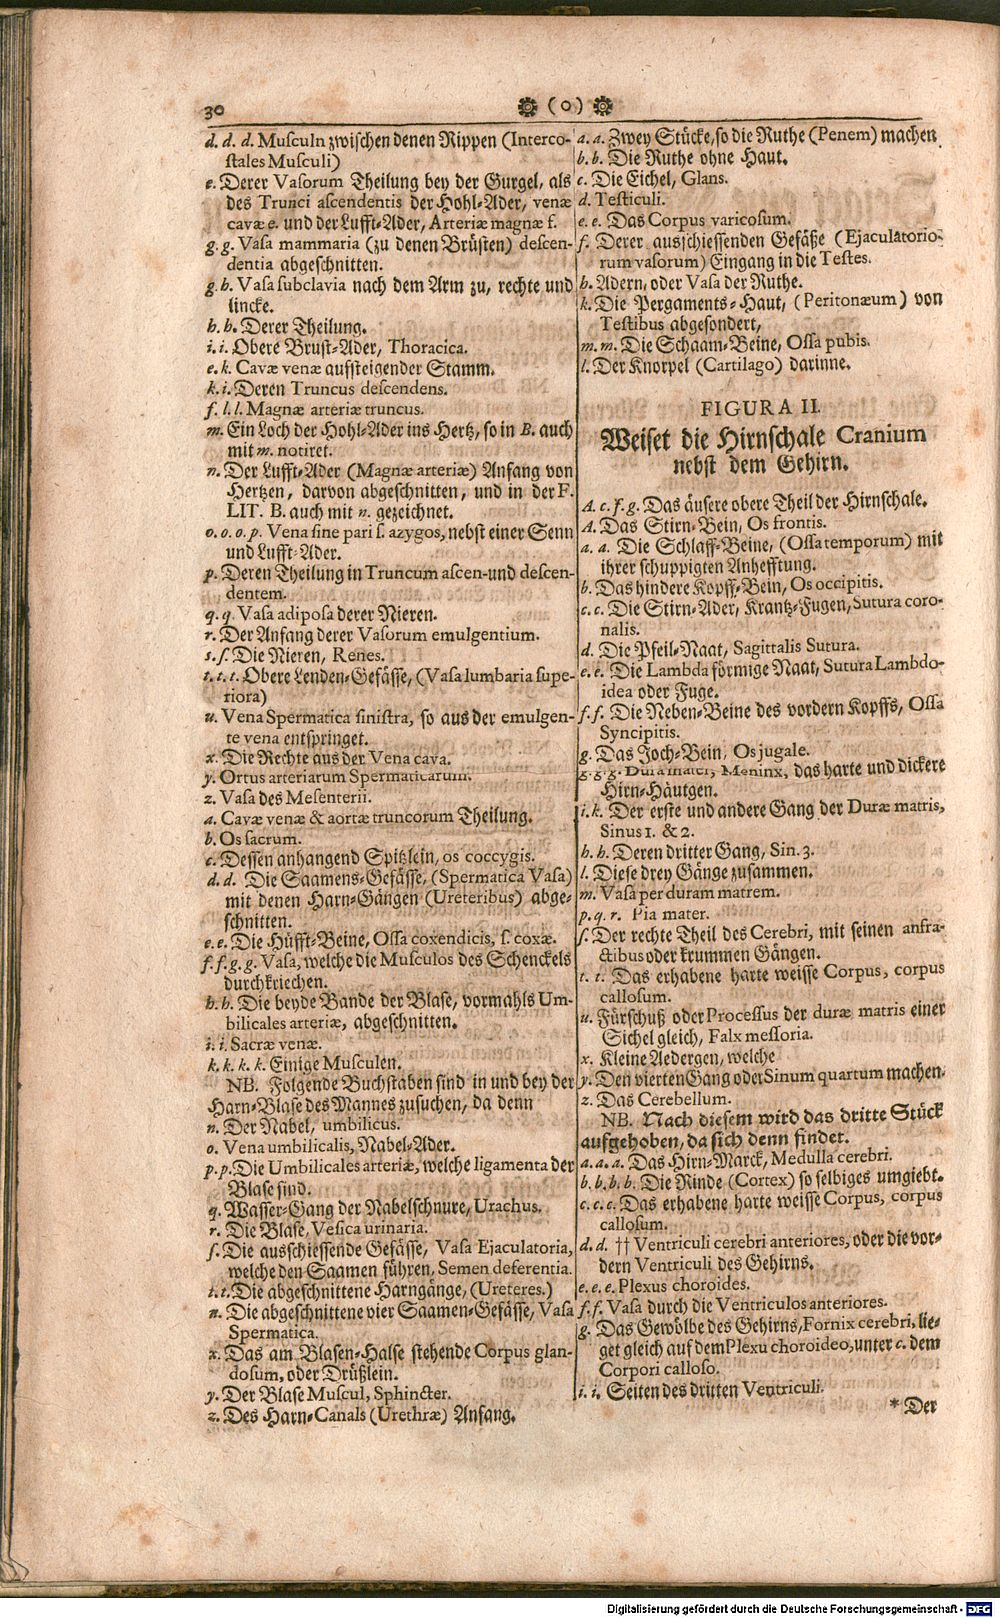 30
(o)
d. d. d. Musculn zwischen denen Rippen (Interco-
stales Musculi)
e. Derer Vasorum Theilung bey der Gurgel, als
des Trunci ascendentis der Hohl-Ader, venæ
cavæ e. und der Lufft-Ader, Arteriæ magnæ f.
g. g. Vasa mammaria (zu denen Brüsten) descen-
dentia abgeschnitten.
g. h. Vasa subclavia nach dem Arm zu, rechte und
lincke.
h. h. Derer Theilung.
i. i. Obere Brust-Ader, Thoracica.
e. k. Cavæ venæ auffsteigender Stamm.
k. i. Deren Truncus descendens.
f. l. l. Magnæ arteriæ truncus.
m. Ein Loch der Hohl-Ader ins Hertz, so in B. auch
mit m. notiret.
n. Der Lufft-Ader (Magnæ arteriæ) Anfang von
Hertzen, darvon abgeschnitten, und in der F.
LIT. B. auch mit n. gezeichnet.
o. o. o. p. Vena sine pari s. azygos, nebst einer Senn
und Lufft-Ader.
p. Deren Theilung in Truncum ascen-und descen-
dentem.
q. q. Vasa adiposa derer Nieren.
r. Der Anfang derer Vasorum emulgentium.
s. s. Die Nieren, Renes.
t. t. t. Obere Lenden-Gefässe, (Vasa lumbaria supe-
riora)
u. Vena Spermatica sinistra, so aus der emulgen-
te vena entspringet.
x. Die Rechte aus der Vena cava.
y. Ortus arteriarum Spermaticarum.
z. Vasa des Mesenterii.
a. Cavæ venæ & aortæ truncorum Theilung.
b. Os sacrum.
c. Dessen anhangend Spitzlein, os coccygis.
d. d. Die Saamens-Gefässe, (Spermatica Vasa)
mit denen Harn-Gängen (Ureteribus) abge-
schnitten.
e. e. Die Hüfft-Beine, Ossa coxendicis, s. coxæ.
f. f. g. g. Vasa, welche die Musculos des Schenckels
durchkriechen.
h. h. Die beyde Bande der Blase, vormahls Um-
bilicales arteriæ, abgeschnitten.
i. i. Sacræ venæ.
k. k. k. k. Einige Musculen.
NB. Folgende Buchstaben sind in und bey der
Harn-Blase des Mannes zusuchen, da denn
n. Der Nabel, umbilicus.
o. Vena umbilicalis, Nabel-Ader.
p. p. Die Umbilicales arteriæ, welche ligamenta der
Blase sind.
q. Wasser-Gang der Nabelschnure, Urachus.
r. Die Blase, Vesica urinaria.
s. Die ausschiessende Gefässe, Vasa Ejaculatoria,
welche den Saamen führen, Semen deferentia.
t. t. Die abgeschnittene Harngänge, (Ureteres.)
u. Die abgeschnittene vier Saamen-Gefässe, Vasa
Spermatica.
x. Das am Blasen-Halse stehende Corpus glan-
dosum, oder Drüßlein.
y. Der Blase Muscul, Sphincter.
z. Des Harn-Canals (Urethræ) Anfang.
a. a. Zwey Stücke, so die Ruthe (Penem) machen
b. b. Die Ruthe ohne Haut.
c. Die Eichel, Glans.
d. Testiculi.
e. e. Das Corpus varicosum.
f. Derer ausschiessenden Gefäße (Ejaculatorio-
rum vasorum) Eingang in die Testes.
h. Adern, oder Vasa der Ruthe.
k. Die Pergaments-Haut, (Peritonæum) von
Testibus abgesondert,
m. m. Die Schaam-Beine, Ossa pubis.
l. Der Knorpel (Cartilago) darinne.
FIGURA II.
Weiset die Hirnschale Cranium
nebst dem Gehirn.
A. c. f. g. Das äusere obere Theil der Hirnschale.
A. Das Stirn-Bein, Os frontis.
a. a. Die Schlaff-Beine, (Ossa temporum) mit
ihrer schuppigten Anhefftung.
b. Das hindere Kopff-Bein, Os occipitis.
c. c. Die Stirn-Ader, Krantz-Fugen, Sutura coro-
nalis.
d. Die Pfeil-Naat, Sagittalis Sutura.
e. e. Die Lambda förmige Naat, Sutura Lambdo-
idea oder Fuge.
f. f. Die Neben-Beine des vordern Kopffs, Ossa
Syncipitis.
g. Das Joch-Bein, Os jugale.
g. g. g. Dura mater, Meninx, das harte und dickere
Hirn-Häutgen.
i. k. Der erste und andere Gang der Duræ matris,
Sinus 1. & 2.
h. h. Deren dritter Gang, Sin. 3.
l. Diese drey Gänge zusammen.
m. Vasa per duram matrem.
p. q. r. Pia mater.
s. Der rechte Theil des Cerebri, mit seinen anfra-
ctibus oder krummen Gängen.
t. t. Das erhabene harte weisse Corpus, corpus
callosum.
u. Fürschuß oder Processus der duræ matris einer
Sichel gleich, Falx messoria.
x. Kleine Aedergen, welche
y. Den vierten Gang oder Sinum quartum machen.
z. Das Cerebellum.
NB. Nach diesem wird das dritte Stück
aufgehoben, da sich denn findet.
a. a. a. Das Hirn-Marck, Medulla cerebri.
b. b. b. b. Die Rinde (Cortex) so selbiges umgiebt.
c. c. c. Das erhabene harte weisse Corpus, corpus
callosum.
d. d. †† Ventriculi cerebri anteriores, oder die vor-
dern Ventriculi des Gehirns.
e. e. e. Plexus choroides.
f. f. Vasa durch die Ventriculos anteriores.
g. Das Gewölbe des Gehirns, Fornix cerebri, lie-
get gleich auf dem Plexu choroideo, unter c. dem
Corpori calloso.
i. i. Seiten des dritten Ventriculi.
* Der
Digitalisierung gefördert durch die Deutsche Forschungsgemeinschaft - DFG